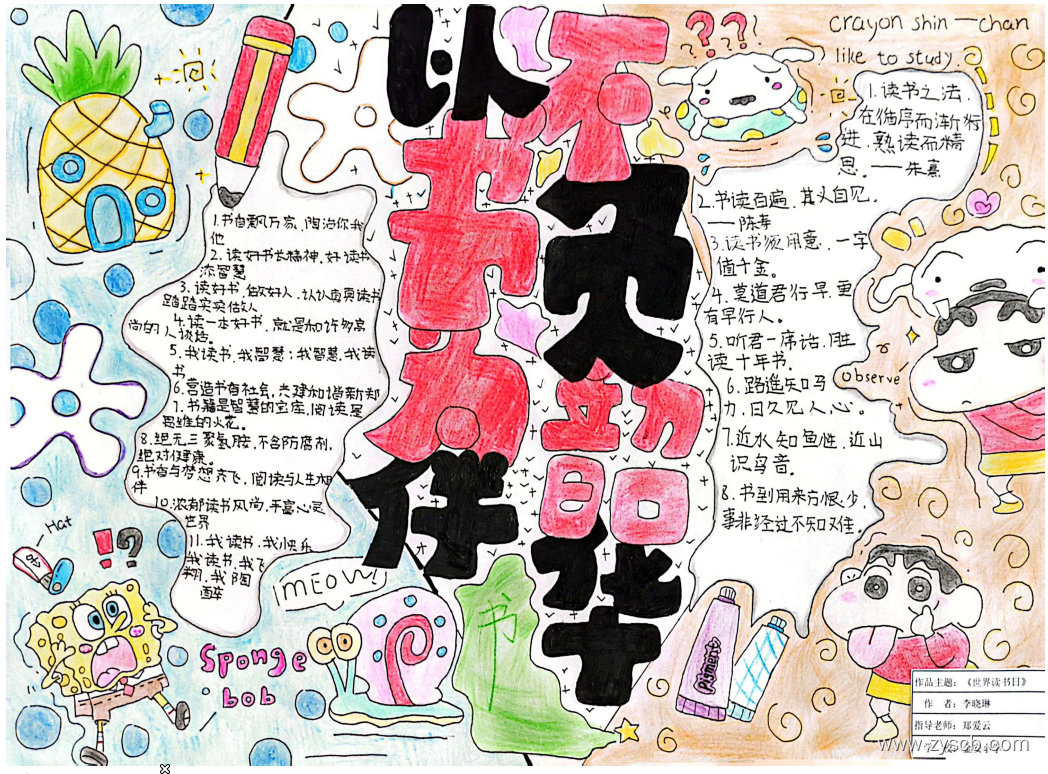 以书为伴
不负韶华
crayon shin—chan
like to study
1.书香飘万家、陶冶你我
他
2.读好书长精神,好读书
添智慧
3.读好书,做好人,认认真真读书
踏踏实实做人
4.读一本好书,就是和许多高
尚的人谈话。
5.我读书、我智慧;我智慧、我读
书
6.营造书香社会,共建和谐新邦
7.书籍是智慧的宝库,阅读是
思维的火花。
8.绝无三聚氰胺,不含防腐剂,
绝对健康。
9.书香与梦想齐飞,阅读与人生相
伴
10.浓郁读书风尚,丰富心灵
世界
11.我读书,我快乐
我读书,我飞
翔,我陶
醉
1.读书之法,
在循序而渐行
进,熟读而精
思。——朱熹
2.书读百遍,其义自见。
——陈寿
3.读书须用意,一字
值千金。
4.莫道君行早,更
有早行人。
5.听君一席话,胜
读十年书.
6.路遥知马
力,日久见人心。
7.近水知鱼性,近山
识鸟音。
8.书到用来方恨少,
事非经过不知难。
observe
Hat
MEOW!
Sponge
bob
书
Pigment
作品主题:《世界读书日》
作 者:李晓琳
指导老师:郑爱云
www.zyscb.com